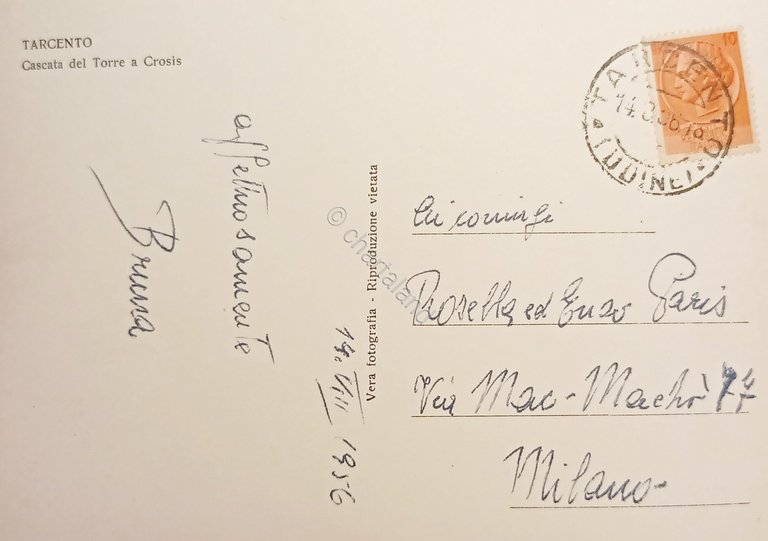 TARCENTO
Cascata del Torre a Crosis
affettuosamente
Bruna
14. VIII 1956
Vera fotografia - Riproduzione vietata
© chartaland
10
TARCENTO
14.8.56.18
(UDINE)
Ai coniugi
Rosella ed Enzo Paris
Via Mac-Machò 77
Milano-